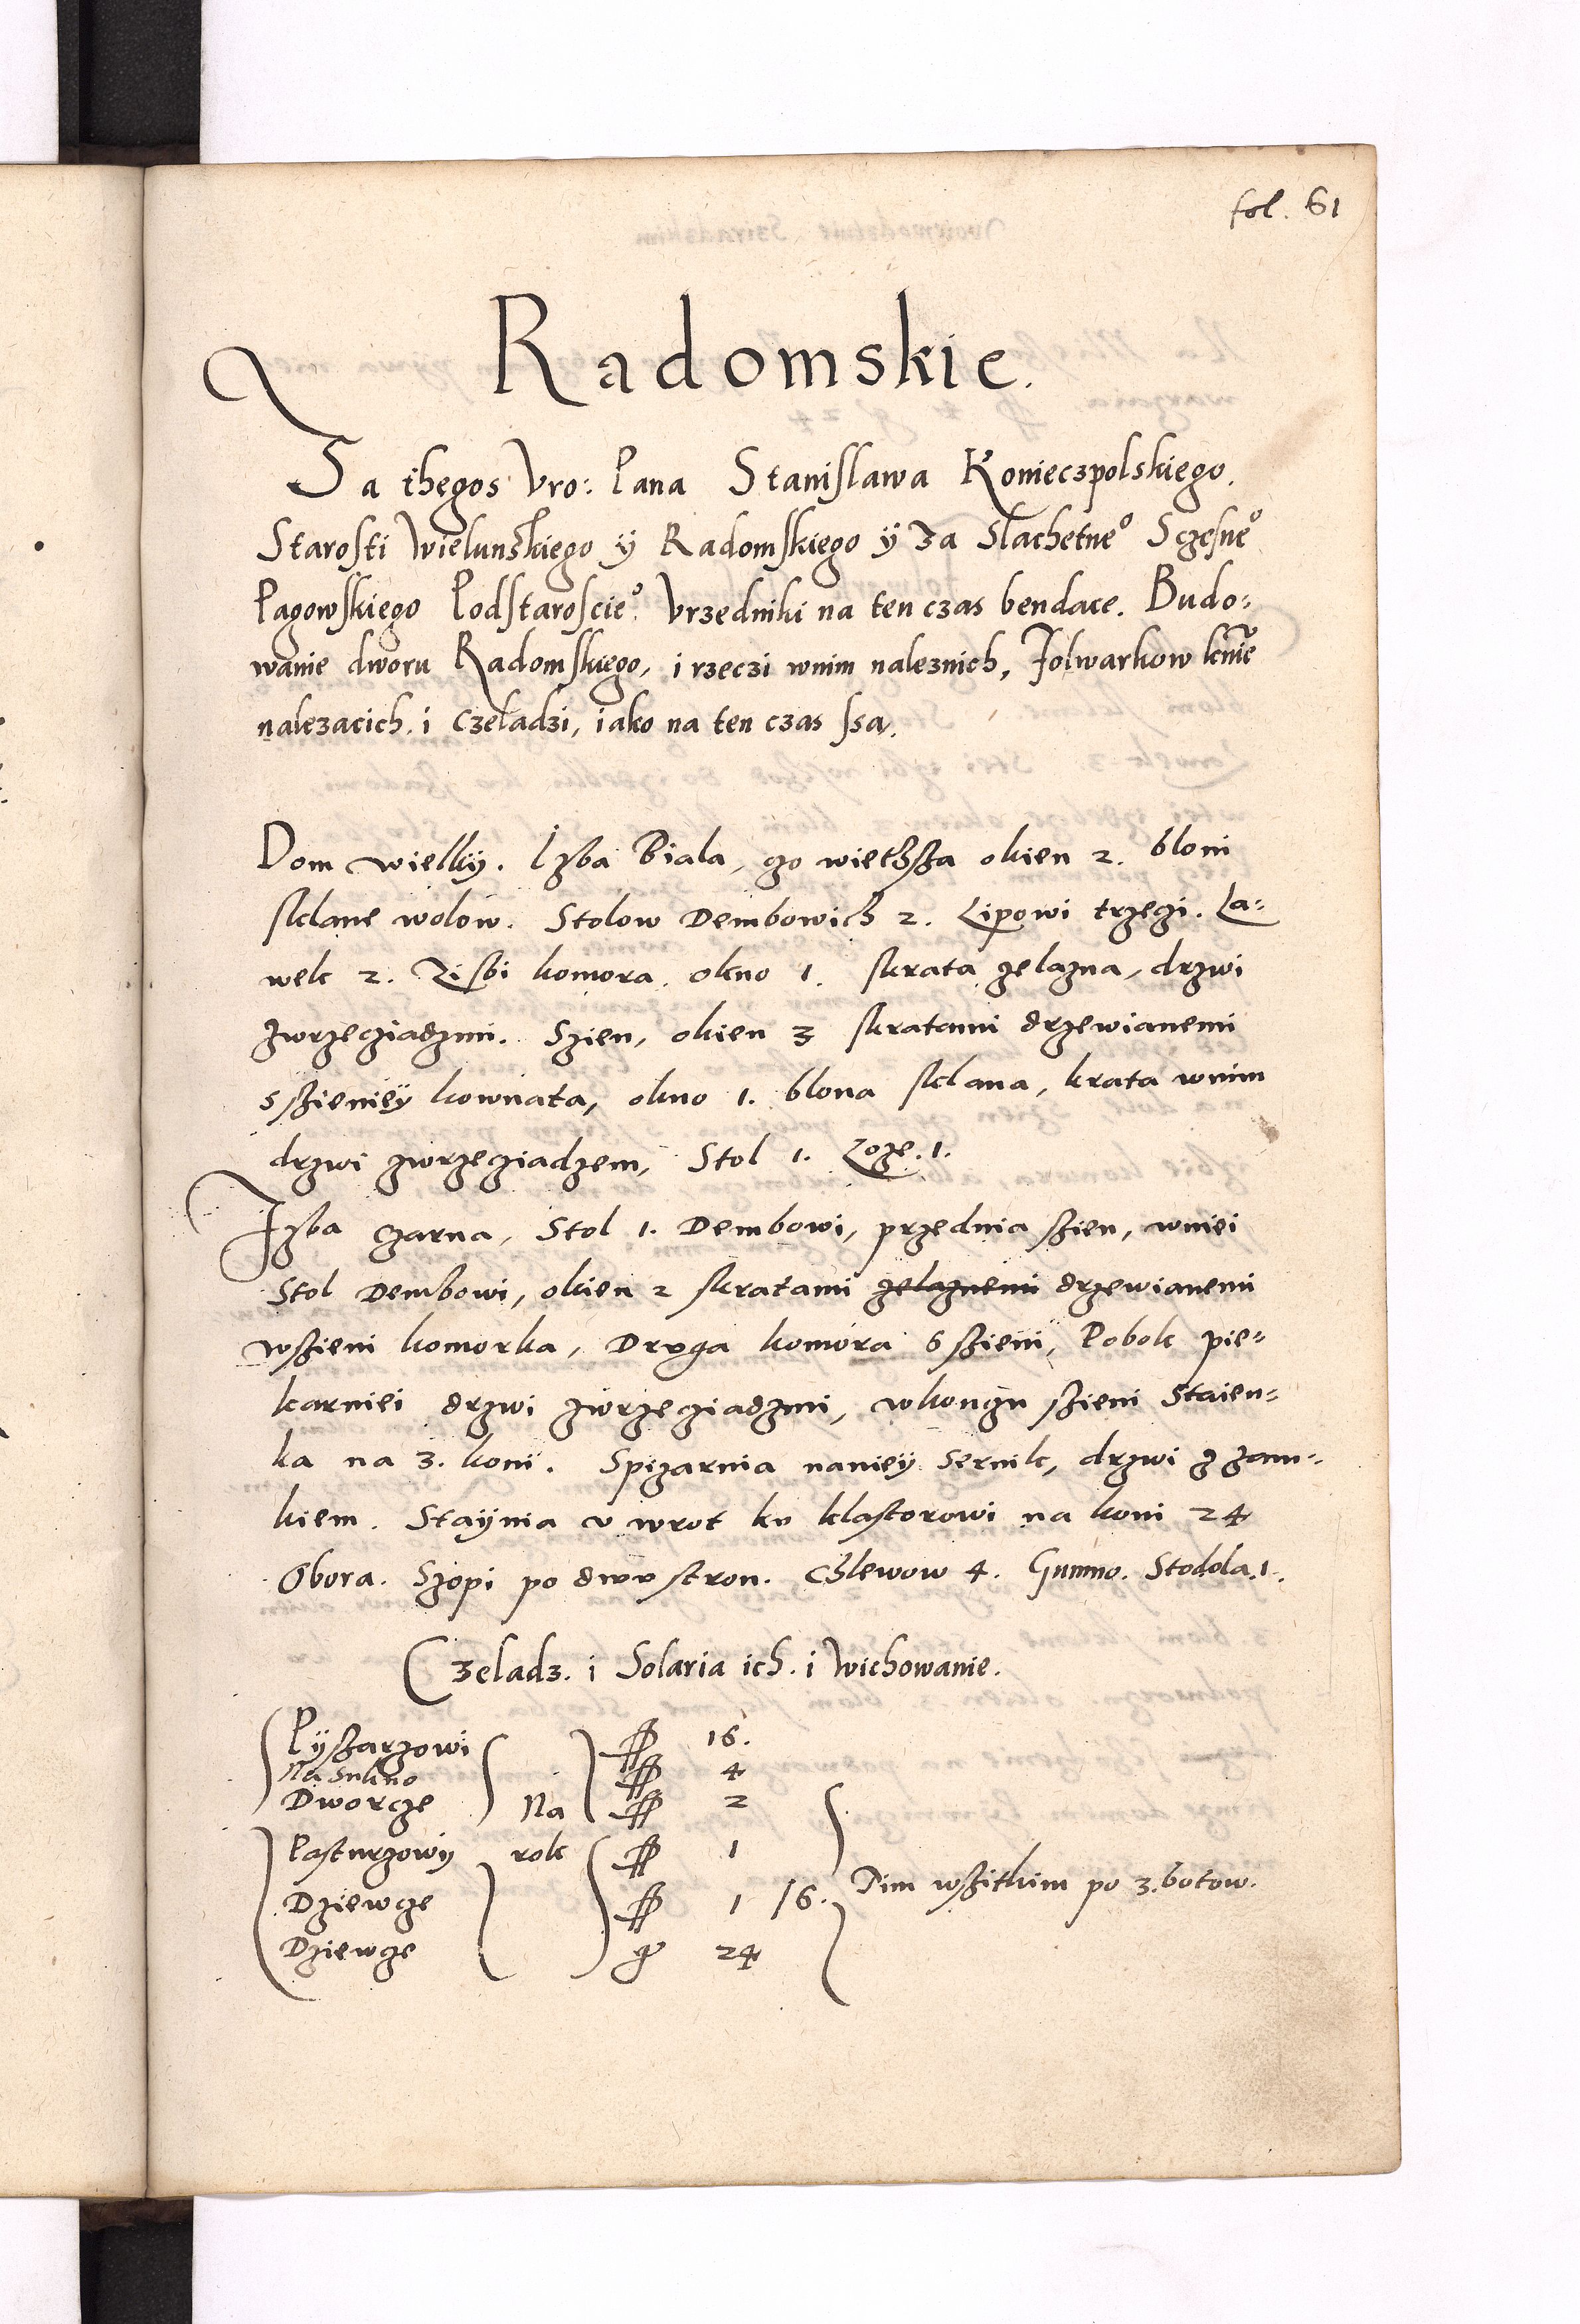 fol. 61
Radomskie.
Za thegos Vro: Pana Stanislawa Konieczpolskiego.
Starosti Wielunskiego ÿ Radomskiego ÿ za Slachetne° Sczesne°
Pagowskiego Podstaroscie°. Vrzedniki na ten czas bendace. Budo:
wanie dworu Radomskiego, i rzeczi wnim naleznich, Folwarkow knie
nalezacich. i Czeladzi, iako na ten czas ssa.
Dom wielkÿ. Izba Biala, czo wiethsza okien 2. bloni
sklane wolow. Stolow Dembowich 2. Lipowi trzeczi. La-
wek 2. Zisbi komora. okno 1. skrata zelazna, drzwi
zwrzecziadzmi. Szien, okien 3 skratami drzewianemi
sszieniey kownata, okno 1. blona sklana, krata wnim
drzwi zwrzecziadzem, Stol 1. Loze. 1.
Izba czarna, Stol 1. Dembowi, przednia szien, wniei
Stol Dembowi, okien 2 skratami zelaznemi drzewianemi
wszieni komorka, Druga komora 6 szieni, Pobok pie-
karniei drzwi zwrzecziadzmi, wkonczu szieni Staien-
ka na 3. koni. Spizarnia naniey Sernik, drzwi z zam-
kiem. Staÿnia v wrot kv klastorowi na koni 24
Obora. Szopi po dwv stron. Chlewow 4. Gumno. Stodola. 1.
Czeladz. i Solaria ich. i Wichowanie.
Pÿszarzowi 16.
Na Sukno 4
Dworcze Na 2
Pasturzowÿ rok 1
Dziewcze 1 /6. Tim wszitkim po 3. botow.
Dziewcze gr 24